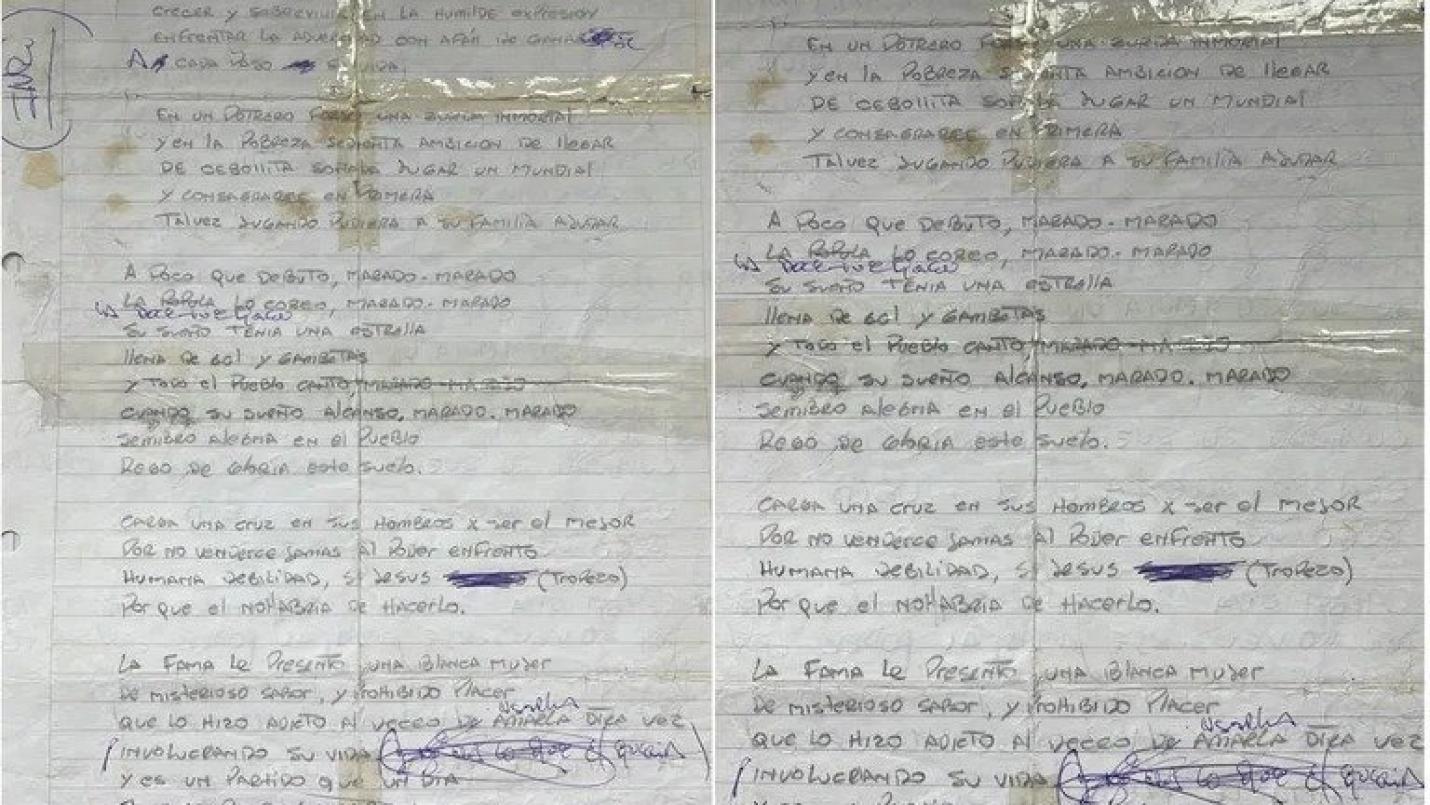 CRECER y SOBREVIVIR EN LA HUMILDE EXPRESION
ENFRENTAR LA ADVERSIDAD CON AFÁN DE
A CADA PASO SU VIDA
EN UN POTRERO FORJO UNA ZURDA INMORTAL
y EN la POBREZA SEDIENTA AMBICION DE llEGAR
DE CEBOllITA SOÑABA JUGAR UN MUNDIAl
y CONSAGRARSE EN PRIMERA
TALVEZ JUGANDO PUDIERA A SU FAMILIA AYUDAR
A POCO QUE DEBUTO, MARADO-MARADO
LA COREO, MARADO-MARADO
SU SUEÑO TENIA UNA ESTRELLA
llENA DE GOl y GAMBETAS
y TODO el PUEBLO CANTO MARADO-MARADO
CUANDO SU SUEÑO AlCANSO, MARADO. MARADO
SEMBRO AlEGRIA EN El PUEBLO
REGO DE GlORIA ESTE SUELO.
CARGA UNA CRUZ EN SUS HOMBROS X SER El MEJOR
POR NO VENDERCE JAMAS Al PODER ENFRENTO
HUMANA DEBILIDAD, SI JESUS (TROPEZO)
POR QUE El NO HABRIA DE HACERLO.
LA FAMA LE PRESENTO UNA BlANCA MUJER
DE MISTERIOSO SABOR, y PROHIBIDO PlACER
QUE LO HIZO ADICTO Al DE AMARLA OTRA VEZ
INVOLUCRANDO SU VIDA
y ES UN PARTIDO QUE UN DIA
EN UN POTRERO FORJO UNA ZURDA INMORTAl
y EN la POBREZA SEDIENTA AMBICION DE llEGAR
DE CEBOllITA SOÑABA JUGAR UN MUNDIAl
y CONSAGRARSE EN PRIMERA
TALVEZ JUGANDO PUDIERA A SU FAMILIA AYUDAR
A POCO QUE DEBUTO, MARADO-MARADO
LA COREO, MARADO-MARADO
SU SUEÑO TENIA UNA ESTRELLA
llENA DE GOl y GAMBETAS
y TODO el PUEBLO CANTO MARADO-MARADO
CUANDO SU SUEÑO AlCANSO, MARADO. MARADO
SEMBRO AlEGRIA EN El PUEBLO
REGO DE GlORIA ESTE SUELO.
CARGA UNA CRUZ EN SUS HOMBROS X SER El MEJOR
POR NO VENDERCE JAMAS Al PODER ENFRENTO
HUMANA DEBILIDAD, SI JESUS (TROPEZO)
POR QUE El NO HABRIA DE HACERLO.
LA FAMA LE PRESENTO UNA BlANCA MUJER
DE MISTERIOSO SABOR, y PROHIBIDO PlACER
QUE LO HIZO ADICTO Al DE AMARLA OTRA VEZ
INVOLUCRANDO SU VIDA